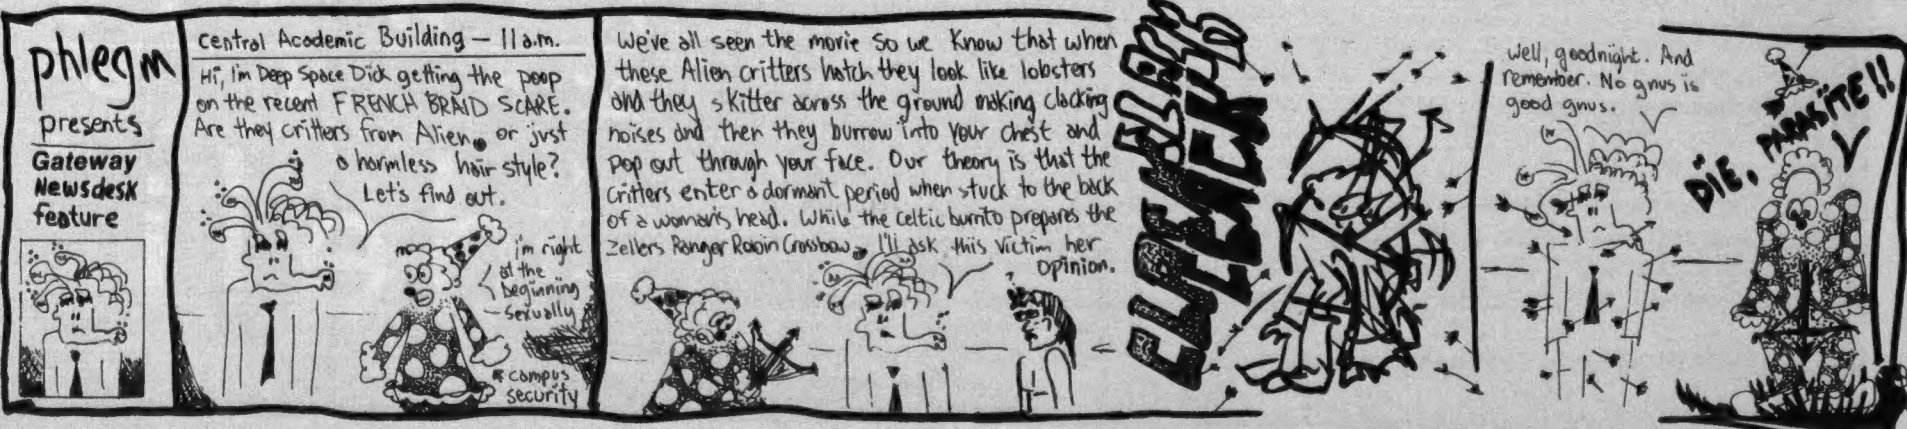 phlegm
presents
Gateway
Newsdesk
feature
Central Academic Building — 11 a.m.
Hi, I'm Deep Space Dick getting the poop
on the recent FRENCH BRAID SCARE.
Are they critters from Alien, or just
a harmless hair style?
Let's find out.
i'm right
at the
beginning
sexually
campus
security
We've all seen the movie so we know that when
these Alien critters hatch they look like lobsters
and they skitter across the ground making clacking
noises and then they burrow into your chest and
pop out through your face. Our theory is that the
critters enter a dormant period when stuck to the back
of a woman's head. While the celtic burrito prepares the
Zellers Ranger Robin Crossbow, I'll ask this victim her
opinion.
CLACK
Well, goodnight. And
remember. No gnus is
good gnus.
DIE, PARASITE!!